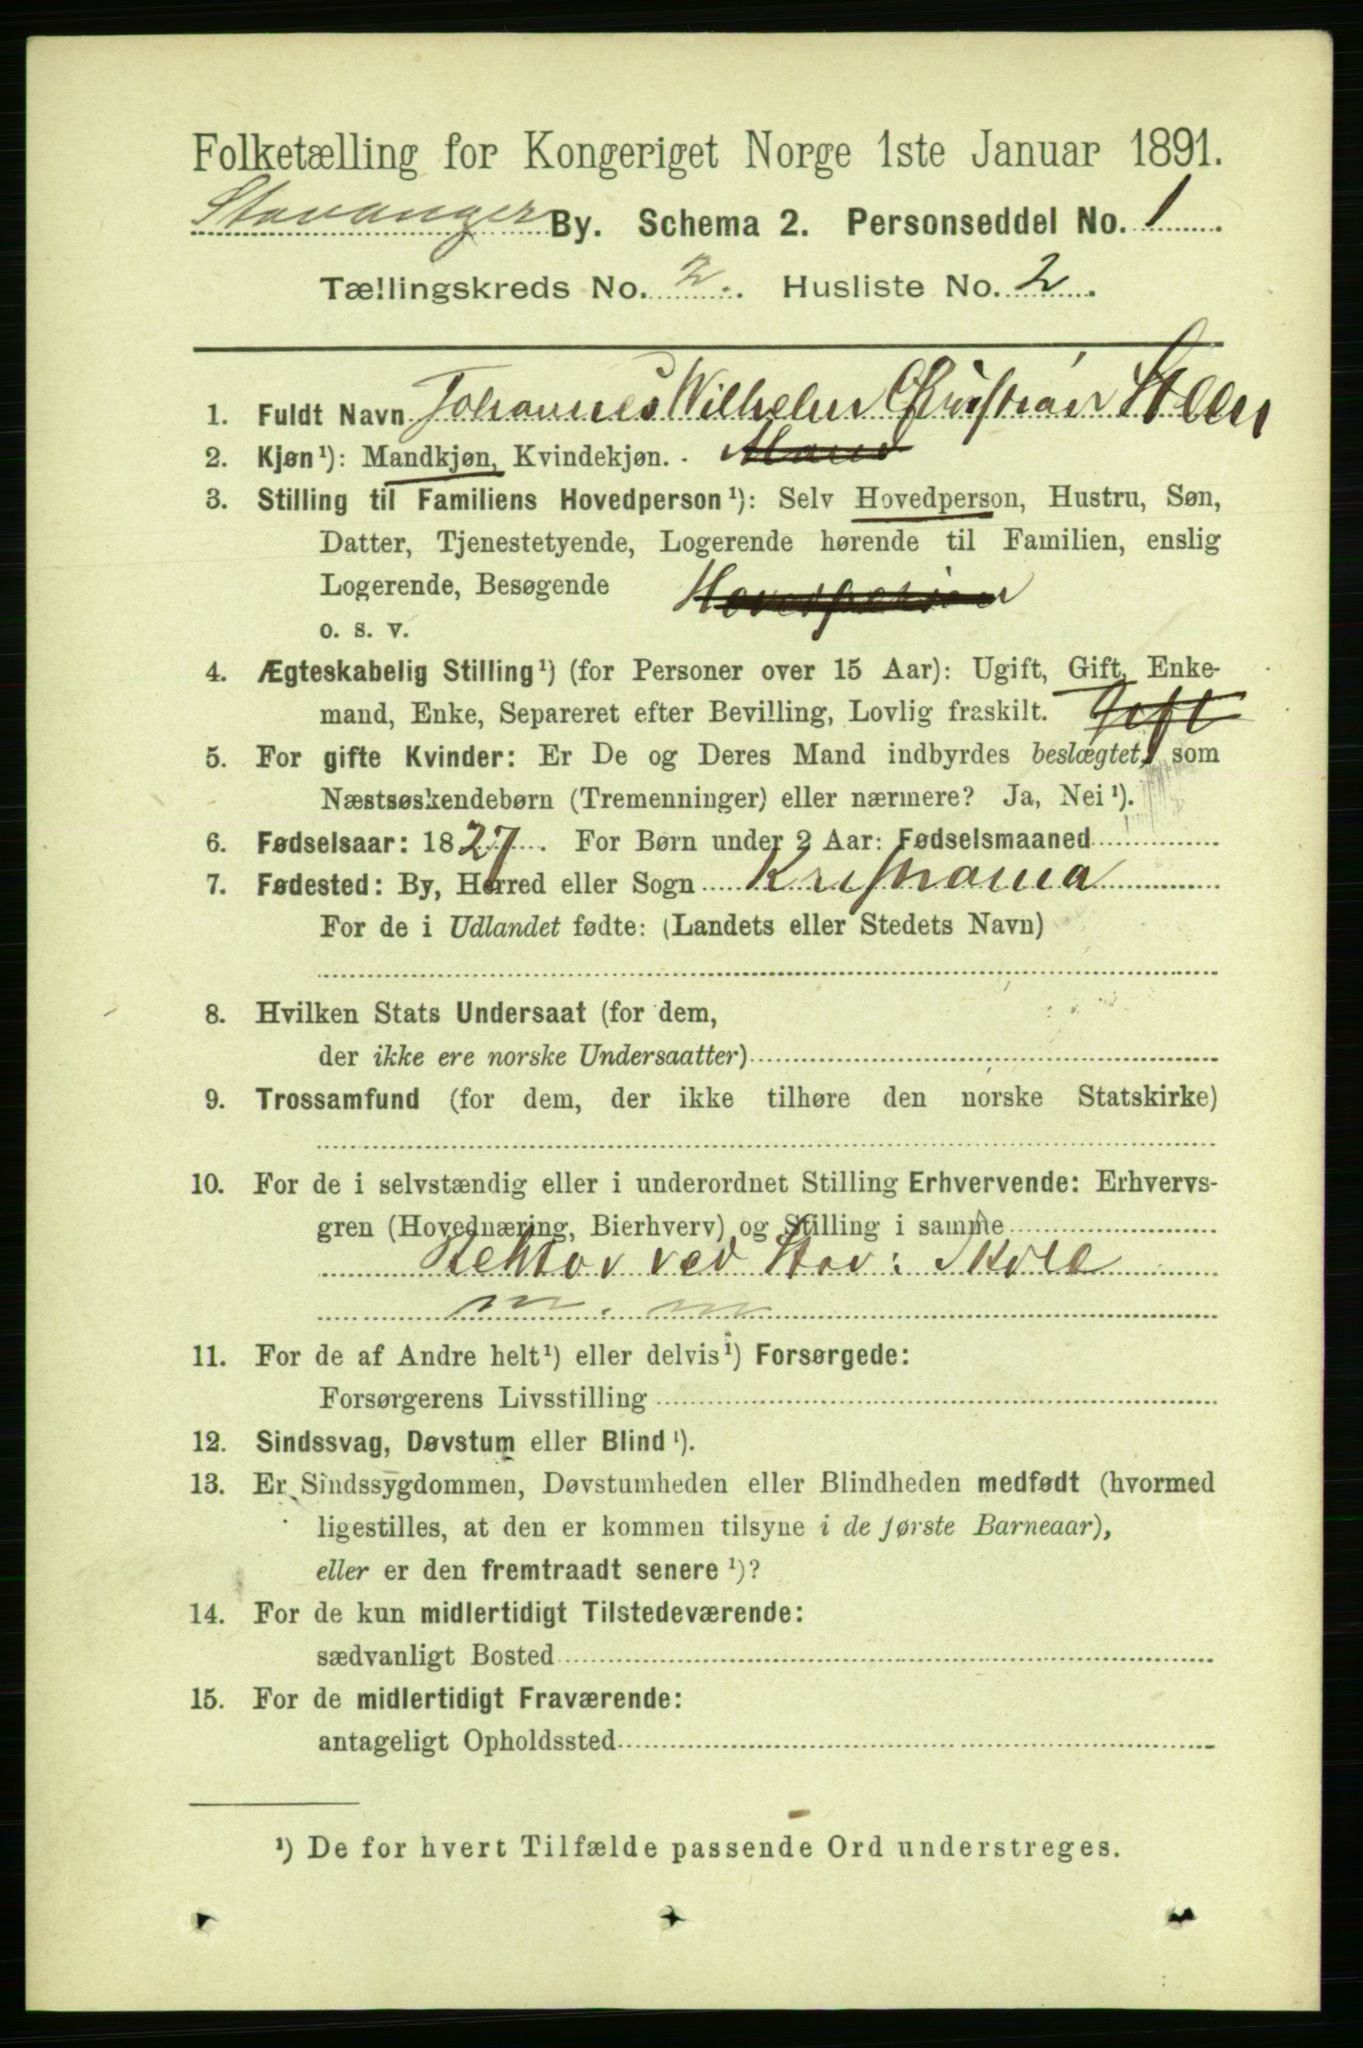 Folketælling for Kongeriget Norge 1ste Januar 1891.
Stavanger By. Schema 2. Personseddel No. 1
Tællingskreds No. 2. Husliste No. 2.
1. Fuldt Navn Johannes Wilhelm Christian Steen
2. Kjøn¹): Mandkjøn, Kvindekjøn. Mand
3. Stilling til Familiens Hovedperson¹): Selv Hovedperson, Hustru, Søn,
Datter, Tjenestetyende, Logerende hørende til Familien, enslig
Logerende, Besøgende Hovedperson
o. s. v.
4. Ægteskabelig Stilling¹) (for Personer over 15 Aar): Ugift, Gift, Enke-
mand, Enke, Separeret efter Bevilling, Lovlig fraskilt. Gift
5. For gifte Kvinder: Er De og Deres Mand indbyrdes beslægtet, som
Næstsøskendebørn (Tremenninger) eller nærmere? Ja, Nei¹).
6. Fødselsaar: 1827. For Børn under 2 Aar: Fødselsmaaned
7. Fødested: By, Herred eller Sogn Kristiania
For de i Udlandet fødte: (Landets eller Stedets Navn)
8. Hvilken Stats Undersaat (for dem,
der ikke ere norske Undersaatter)
9. Trossamfund (for dem, der ikke tilhøre den norske Statskirke)
10. For de i selvstændig eller i underordnet Stilling Erhvervende: Erhvervs-
gren (Hovednæring, Bierhverv) og Stilling i samme
Rektor ved Stav: Skole
m. m
11. For de af Andre helt¹) eller delvis¹) Forsørgede:
Forsørgerens Livsstilling
12. Sindssvag, Døvstum eller Blind¹).
13. Er Sindssygdommen, Døvstumheden eller Blindheden medfødt (hvormed
ligestilles, at den er kommen tilsyne i de første Barneaar),
eller er den fremtraadt senere¹)?
14. For de kun midlertidigt Tilstedeværende:
sædvanligt Bosted
15. For de midlertidigt Fraværende:
antageligt Opholdssted
¹) De for hvert Tilfælde passende Ord understreges.